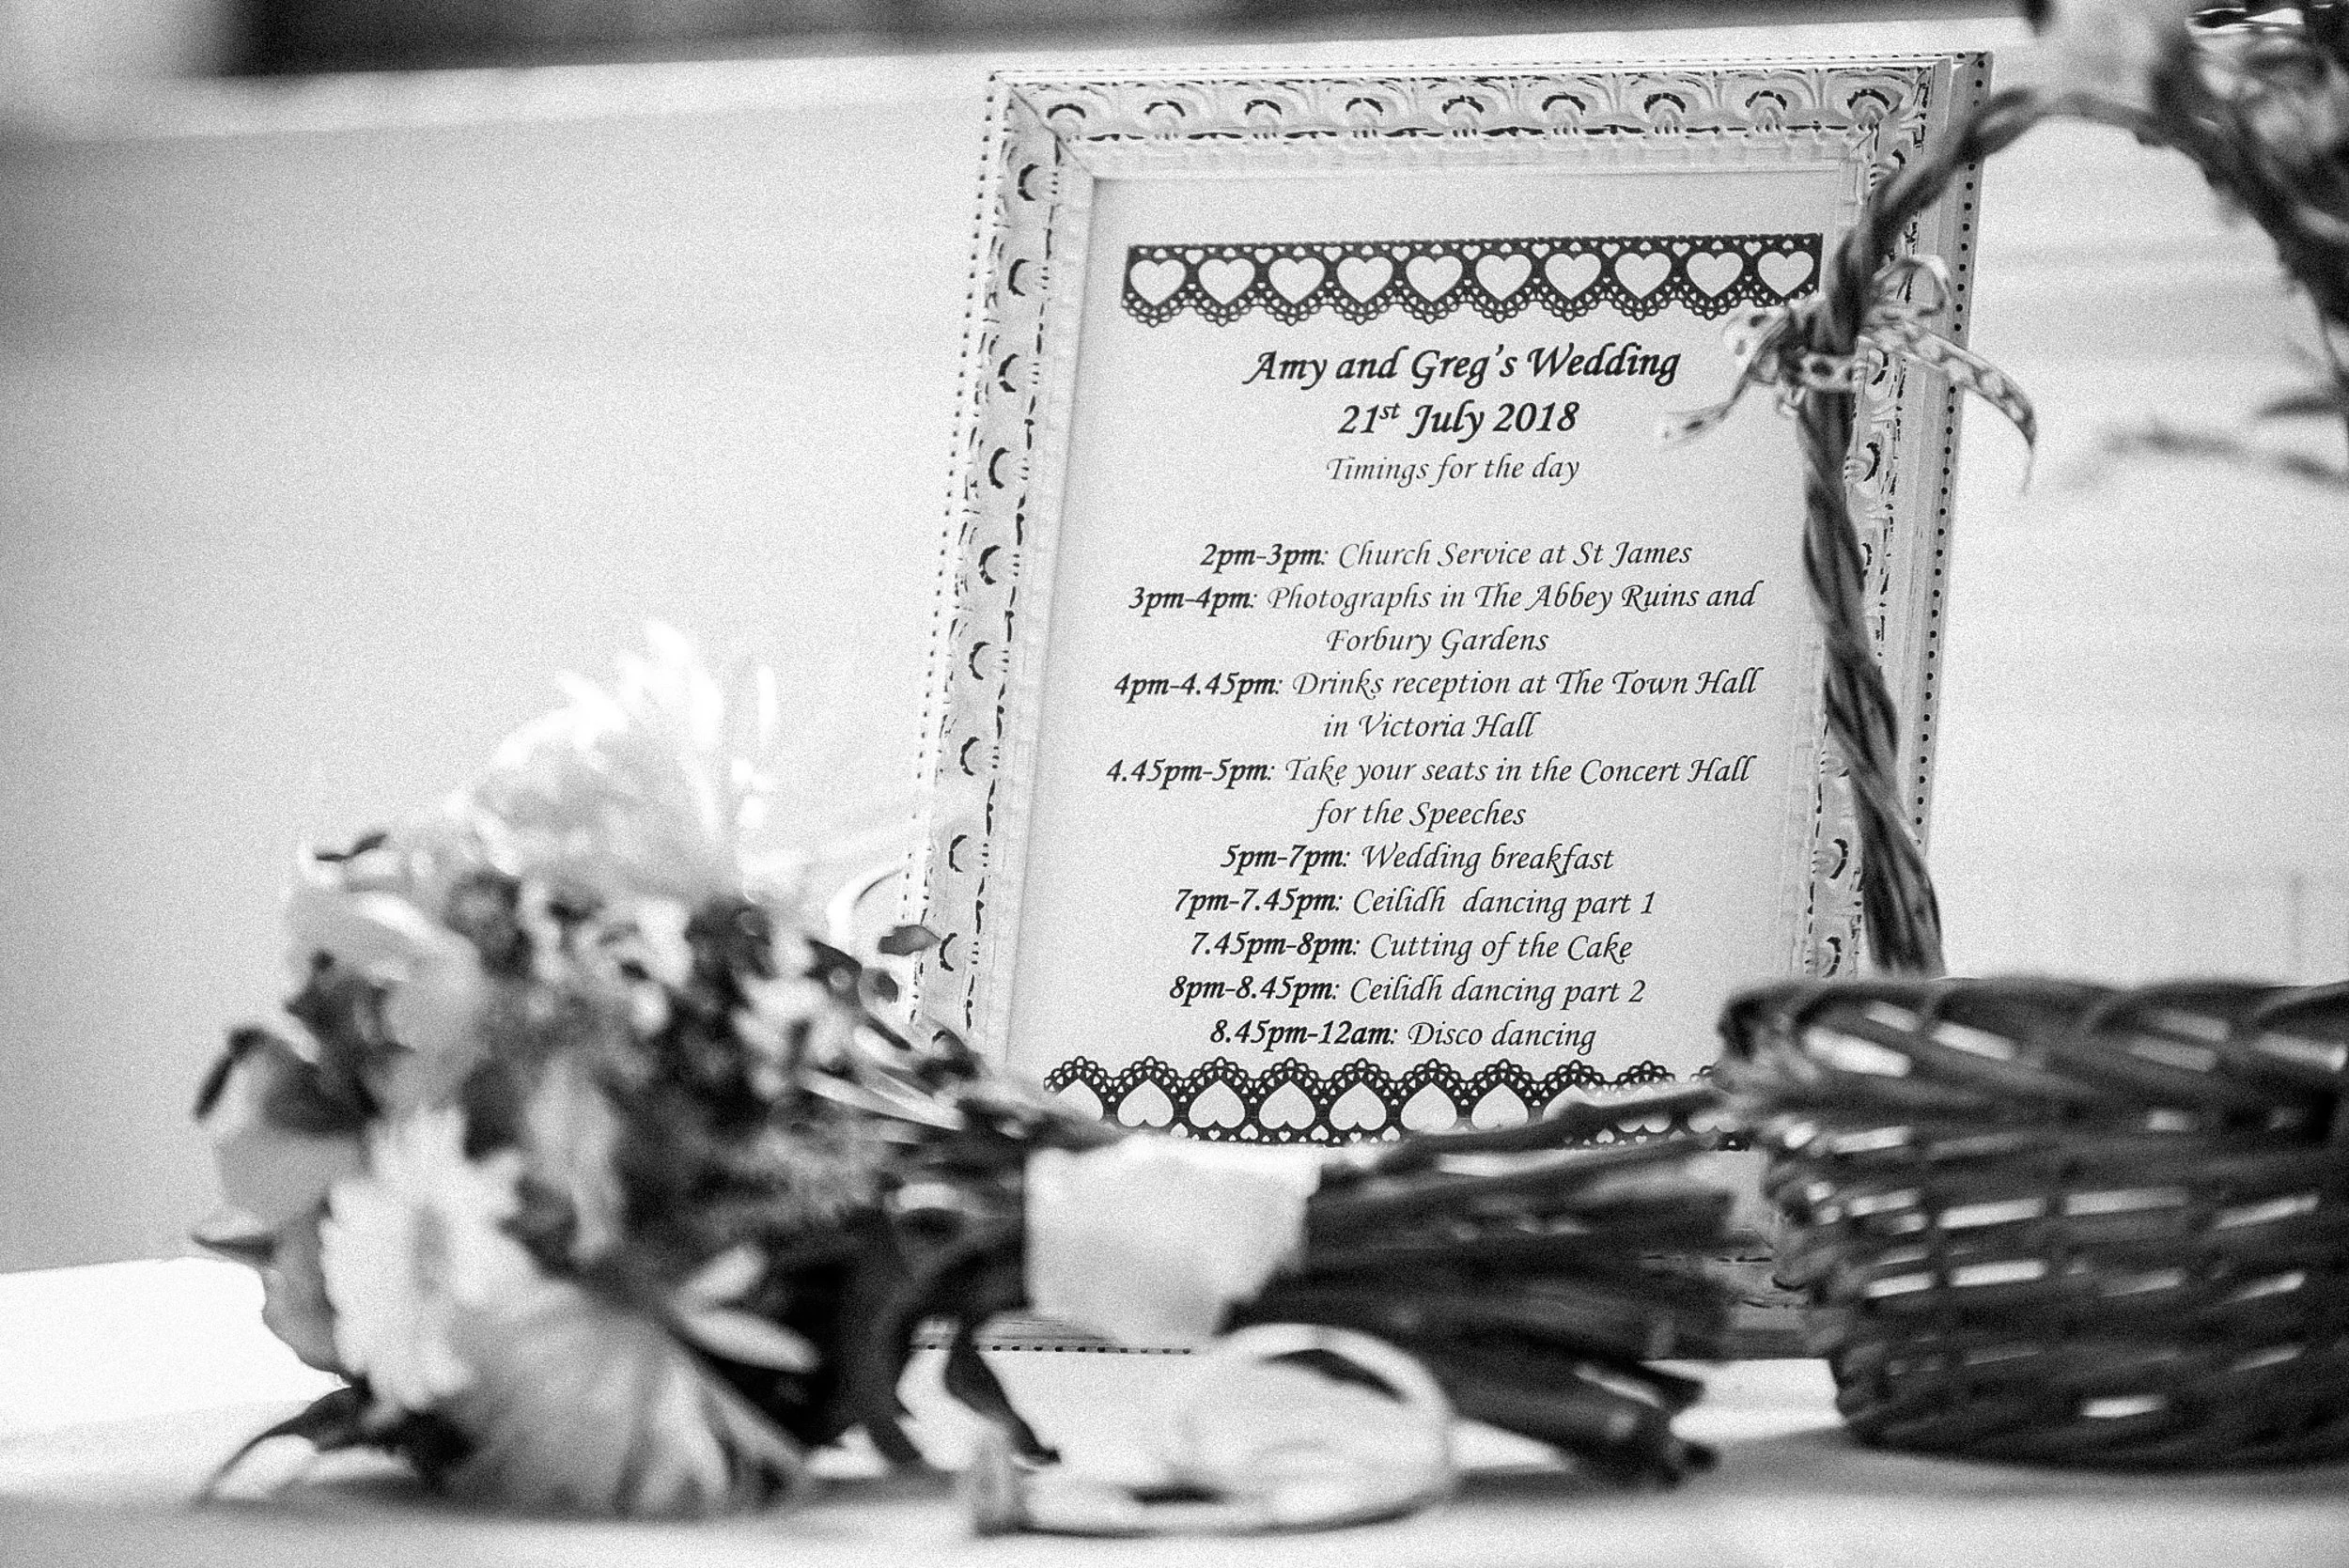 Amy and Greg's Wedding
21st July 2018
Timings for the day
2pm-3pm: Church Service at St James
3pm-4pm: Photographs in The Abbey Ruins and
Forbury Gardens
4pm-4.45pm: Drinks reception at The Town Hall
in Victoria Hall
4.45pm-5pm: Take your seats in the Concert Hall
for the Speeches
5pm-7pm: Wedding breakfast
7pm-7.45pm: Ceilidh dancing part 1
7.45pm-8pm: Cutting of the Cake
8pm-8.45pm: Ceilidh dancing part 2
8.45pm-12am: Disco dancing